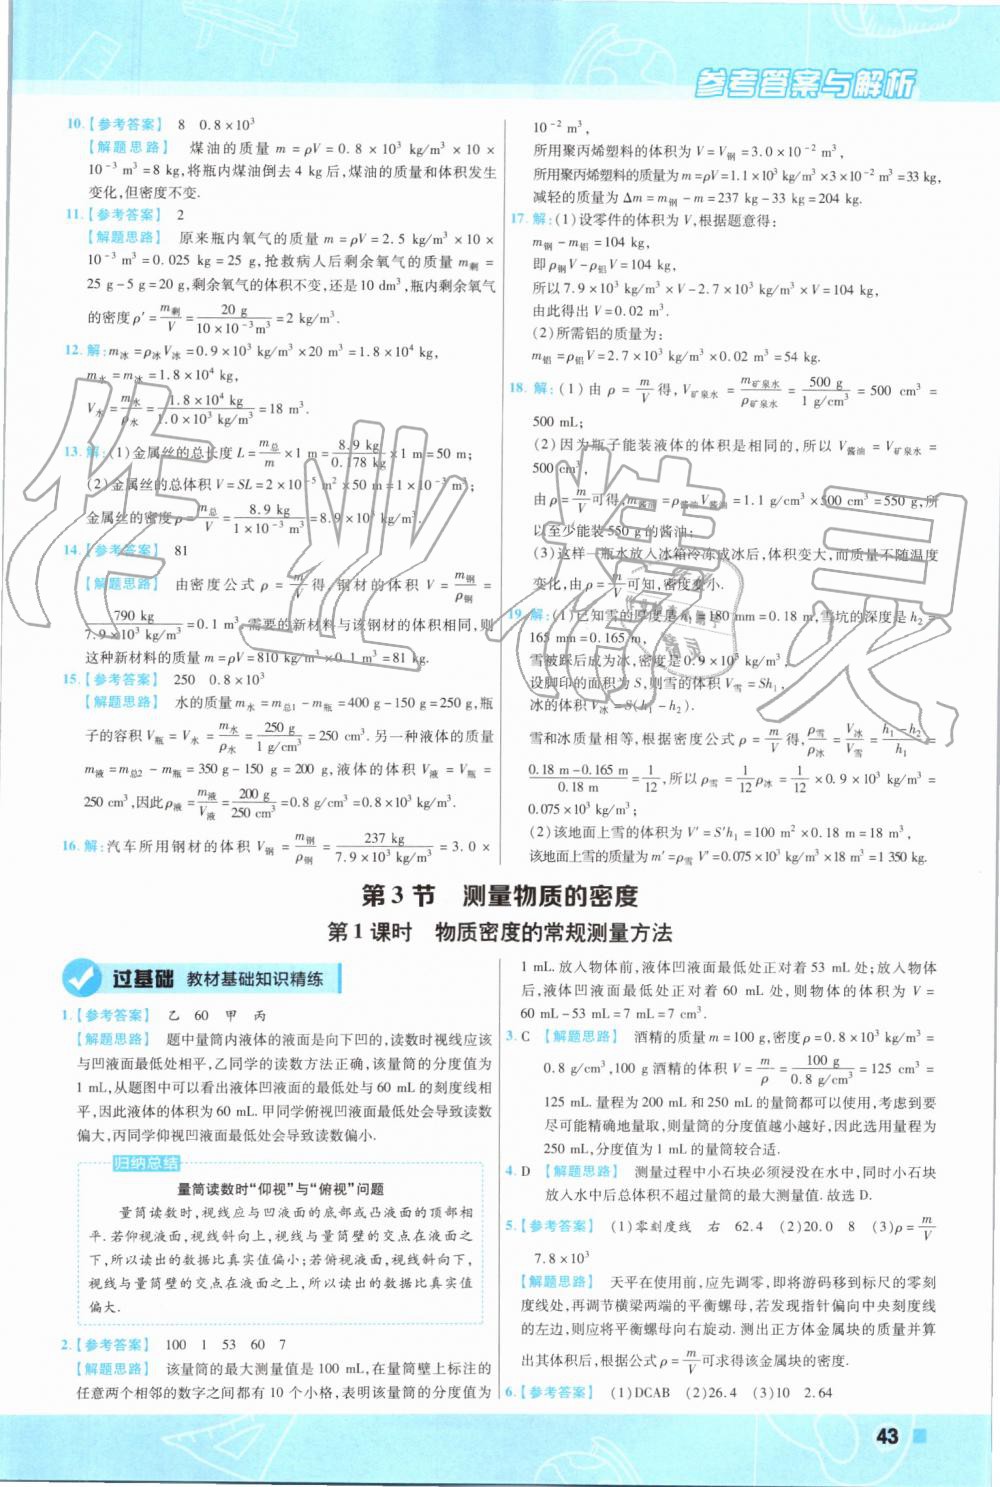 参考答案与解析
10.【参考答案】 8 0.8×10³
【解题思路】 煤油的质量 m=ρV=0.8×10³ kg/m³×10×
10⁻³ m³=8 kg,将瓶内煤油倒去 4 kg 后,煤油的质量和体积发生
变化,但密度不变.
11.【参考答案】 2
【解题思路】 原来瓶内氧气的质量 m=ρV=2.5 kg/m³×10×
10⁻³ m³=0.025 kg=25 g,抢救病人后剩余氧气的质量 m剩=
25 g-5 g=20 g,剩余氧气的体积不变,还是10 dm³,瓶内剩余氧气
的密度ρ′=m剩/V=20 g/(10×10⁻³ m³)=2 kg/m³.
12.解:m冰=ρ冰V冰=0.9×10³ kg/m³×20 m³=1.8×10⁴ kg,
m水=m冰=1.8×10⁴ kg,
V水=m水/ρ水=1.8×10⁴ kg/(1.0×10³ kg/m³)=18 m³.
13.解:(1)金属丝的总长度 L=m总/m×1 m=8.9 kg/0.178 kg×1 m=50 m;
(2)金属丝的总体积 V=SL=2×10⁻⁵ m²×50 m=1×10⁻³ m³;
金属丝的密度ρ=m总/V=8.9 kg/(1×10⁻³ m³)=8.9×10³ kg/m³.
14.【参考答案】 81
【解题思路】 由密度公式 ρ=m/V 得,钢材的体积 V=m钢/ρ钢=
790 kg/(7.9×10³ kg/m³)=0.1 m³,需要的新材料与该钢材的体积相同,则
这种新材料的质量 m=ρV=810 kg/m³×0.1 m³=81 kg.
15.【参考答案】 250 0.8×10³
【解题思路】 水的质量m水=m总1-m瓶=400 g-150 g=250 g,瓶
子的容积 V瓶=V水=m水/ρ水=250 g/(1 g/cm³)=250 cm³.另一种液体的质量
m液=m总2-m瓶=350 g-150 g=200 g,液体的体积 V液=V瓶=
250 cm³,因此ρ液=m液/V液=200 g/250 cm³=0.8 g/cm³=0.8×10³ kg/m³.
16.解:汽车所用钢材的体积 V钢=m钢/ρ钢=237 kg/(7.9×10³ kg/m³)=3.0×
10⁻² m³,
所用聚丙烯塑料的体积为 V=V钢=3.0×10⁻² m³,
所用聚丙烯塑料的质量为 m=ρV=1.1×10³ kg/m³×3×10⁻² m³=33 kg,
减轻的质量为 Δm=m钢-m=237 kg-33 kg=204 kg.
17.解:(1)设零件的体积为 V,根据题意得:
m钢-m铝=104 kg,
即ρ钢V-ρ铝V=104 kg,
所以7.9×10³ kg/m³×V-2.7×10³ kg/m³×V=104 kg,
由此得出 V=0.02 m³.
(2)所需铝的质量为:
m铝=ρ铝V=2.7×10³ kg/m³×0.02 m³=54 kg.
18.解:(1)由 ρ=m/V 得,V矿泉水=m矿泉水/ρ矿泉水=500 g/(1 g/cm³)=500 cm³=
500 mL;
(2)因为瓶子能装液体的体积是相同的,所以 V酱油=V矿泉水=
500 cm³,
由ρ=m/V可得,m酱油=ρ酱油V酱油=1.1 g/cm³×500 cm³=550 g,所
以至少能装550 g的酱油;
(3)这样一瓶水放入冰箱冷冻成冰后,体积变大,而质量不随温度
变化,由ρ=m/V可知,密度变小.
19.解:(1)已知雪的厚度是 h₁=180 mm=0.18 m,雪坑的深度是 h₂=
165 mm=0.165 m,
雪被踩后成为冰,密度是0.9×10³ kg/m³,
设脚印的面积为 S,则雪的体积 V雪=Sh₁,
冰的体积 V冰=S(h₁-h₂).
雪和冰质量相等,根据密度公式ρ=m/V得,ρ雪/ρ冰=V冰/V雪=(h₁-h₂)/h₁=
(0.18 m-0.165 m)/0.18 m=1/12,所以ρ雪=1/12ρ冰=1/12×0.9×10³ kg/m³=
0.075×10³ kg/m³;
(2)该地面上雪的体积为 V′=S′h₁=100 m²×0.18 m=18 m³,
该地面上雪的质量为m′=ρ雪V′=0.075×10³ kg/m³×18 m³=1 350 kg.
第3节 测量物质的密度
第1课时 物质密度的常规测量方法
过基础 教材基础知识精练
1.【参考答案】 乙 60 甲 丙
【解题思路】 题中量筒内液体的液面是向下凹的,读数时视线应该
与凹液面最低处相平,乙同学的读数方法正确,该量筒的分度值为
1 mL,从题图中可以看出液体凹液面的最低处与 60 mL 的刻度线相
平,因此液体的体积为 60 mL.甲同学俯视凹液面最低处会导致读数
偏大,丙同学仰视凹液面最低处会导致读数偏小.
归纳总结
量筒读数时“仰视”与“俯视”问题
量筒读数时,视线应与凹液面的底部或凸液面的顶部相
平.若仰视液面,视线斜向上,视线与量筒壁的交点在液面之
下,所以读出的数据比真实值偏小;若俯视液面,视线斜向下,
视线与量筒壁的交点在液面之上,所以读出的数据比真实值
偏大.
2.【参考答案】 100 1 53 60 7
【解题思路】 该量筒的最大测量值是 100 mL,在量筒壁上标注的
任意两个相邻的数字之间都有 10 个小格,表明该量筒的分度值为
1 mL.放入物体前,液体凹液面最低处正对着 53 mL 处;放入物体
后,液体凹液面最低处正对着 60 mL 处,则物体的体积为 V=
60 mL-53 mL=7 mL=7 cm³.
3.C 【解题思路】 酒精的质量 m=100 g,密度ρ=0.8×10³ kg/m³=
0.8 g/cm³,100 g 酒精的体积 V=m/ρ=100 g/(0.8 g/cm³)=125 cm³=
125 mL.量程为 200 mL 和 250 mL 的量筒都可以使用,考虑到要
尽可能精确地量取,则量筒的分度值越小越好,因此选用量程为
250 mL,分度值为 1 mL 的量筒较合适.
4.D 【解题思路】 测量过程中小石块必须浸没在水中,同时小石块
放入水中后总体积不超过量筒的最大测量值.故选 D.
5.【参考答案】 (1)零刻度线 右 62.4 (2)20.0 8 (3)ρ=m/V
7.8×10³
【解题思路】 天平在使用前,应先调零,即将游码移到标尺的零刻
度线处,再调节横梁两端的平衡螺母,若发现指针偏向中央刻度线
的左边,则应将平衡螺母向右旋动.测出正方体金属块的质量并算
出其体积后,根据公式ρ=m/V可求得该金属块的密度.
6.【参考答案】 (1)DCAB (2)26.4 (3)10 2.64
43
作业精灵